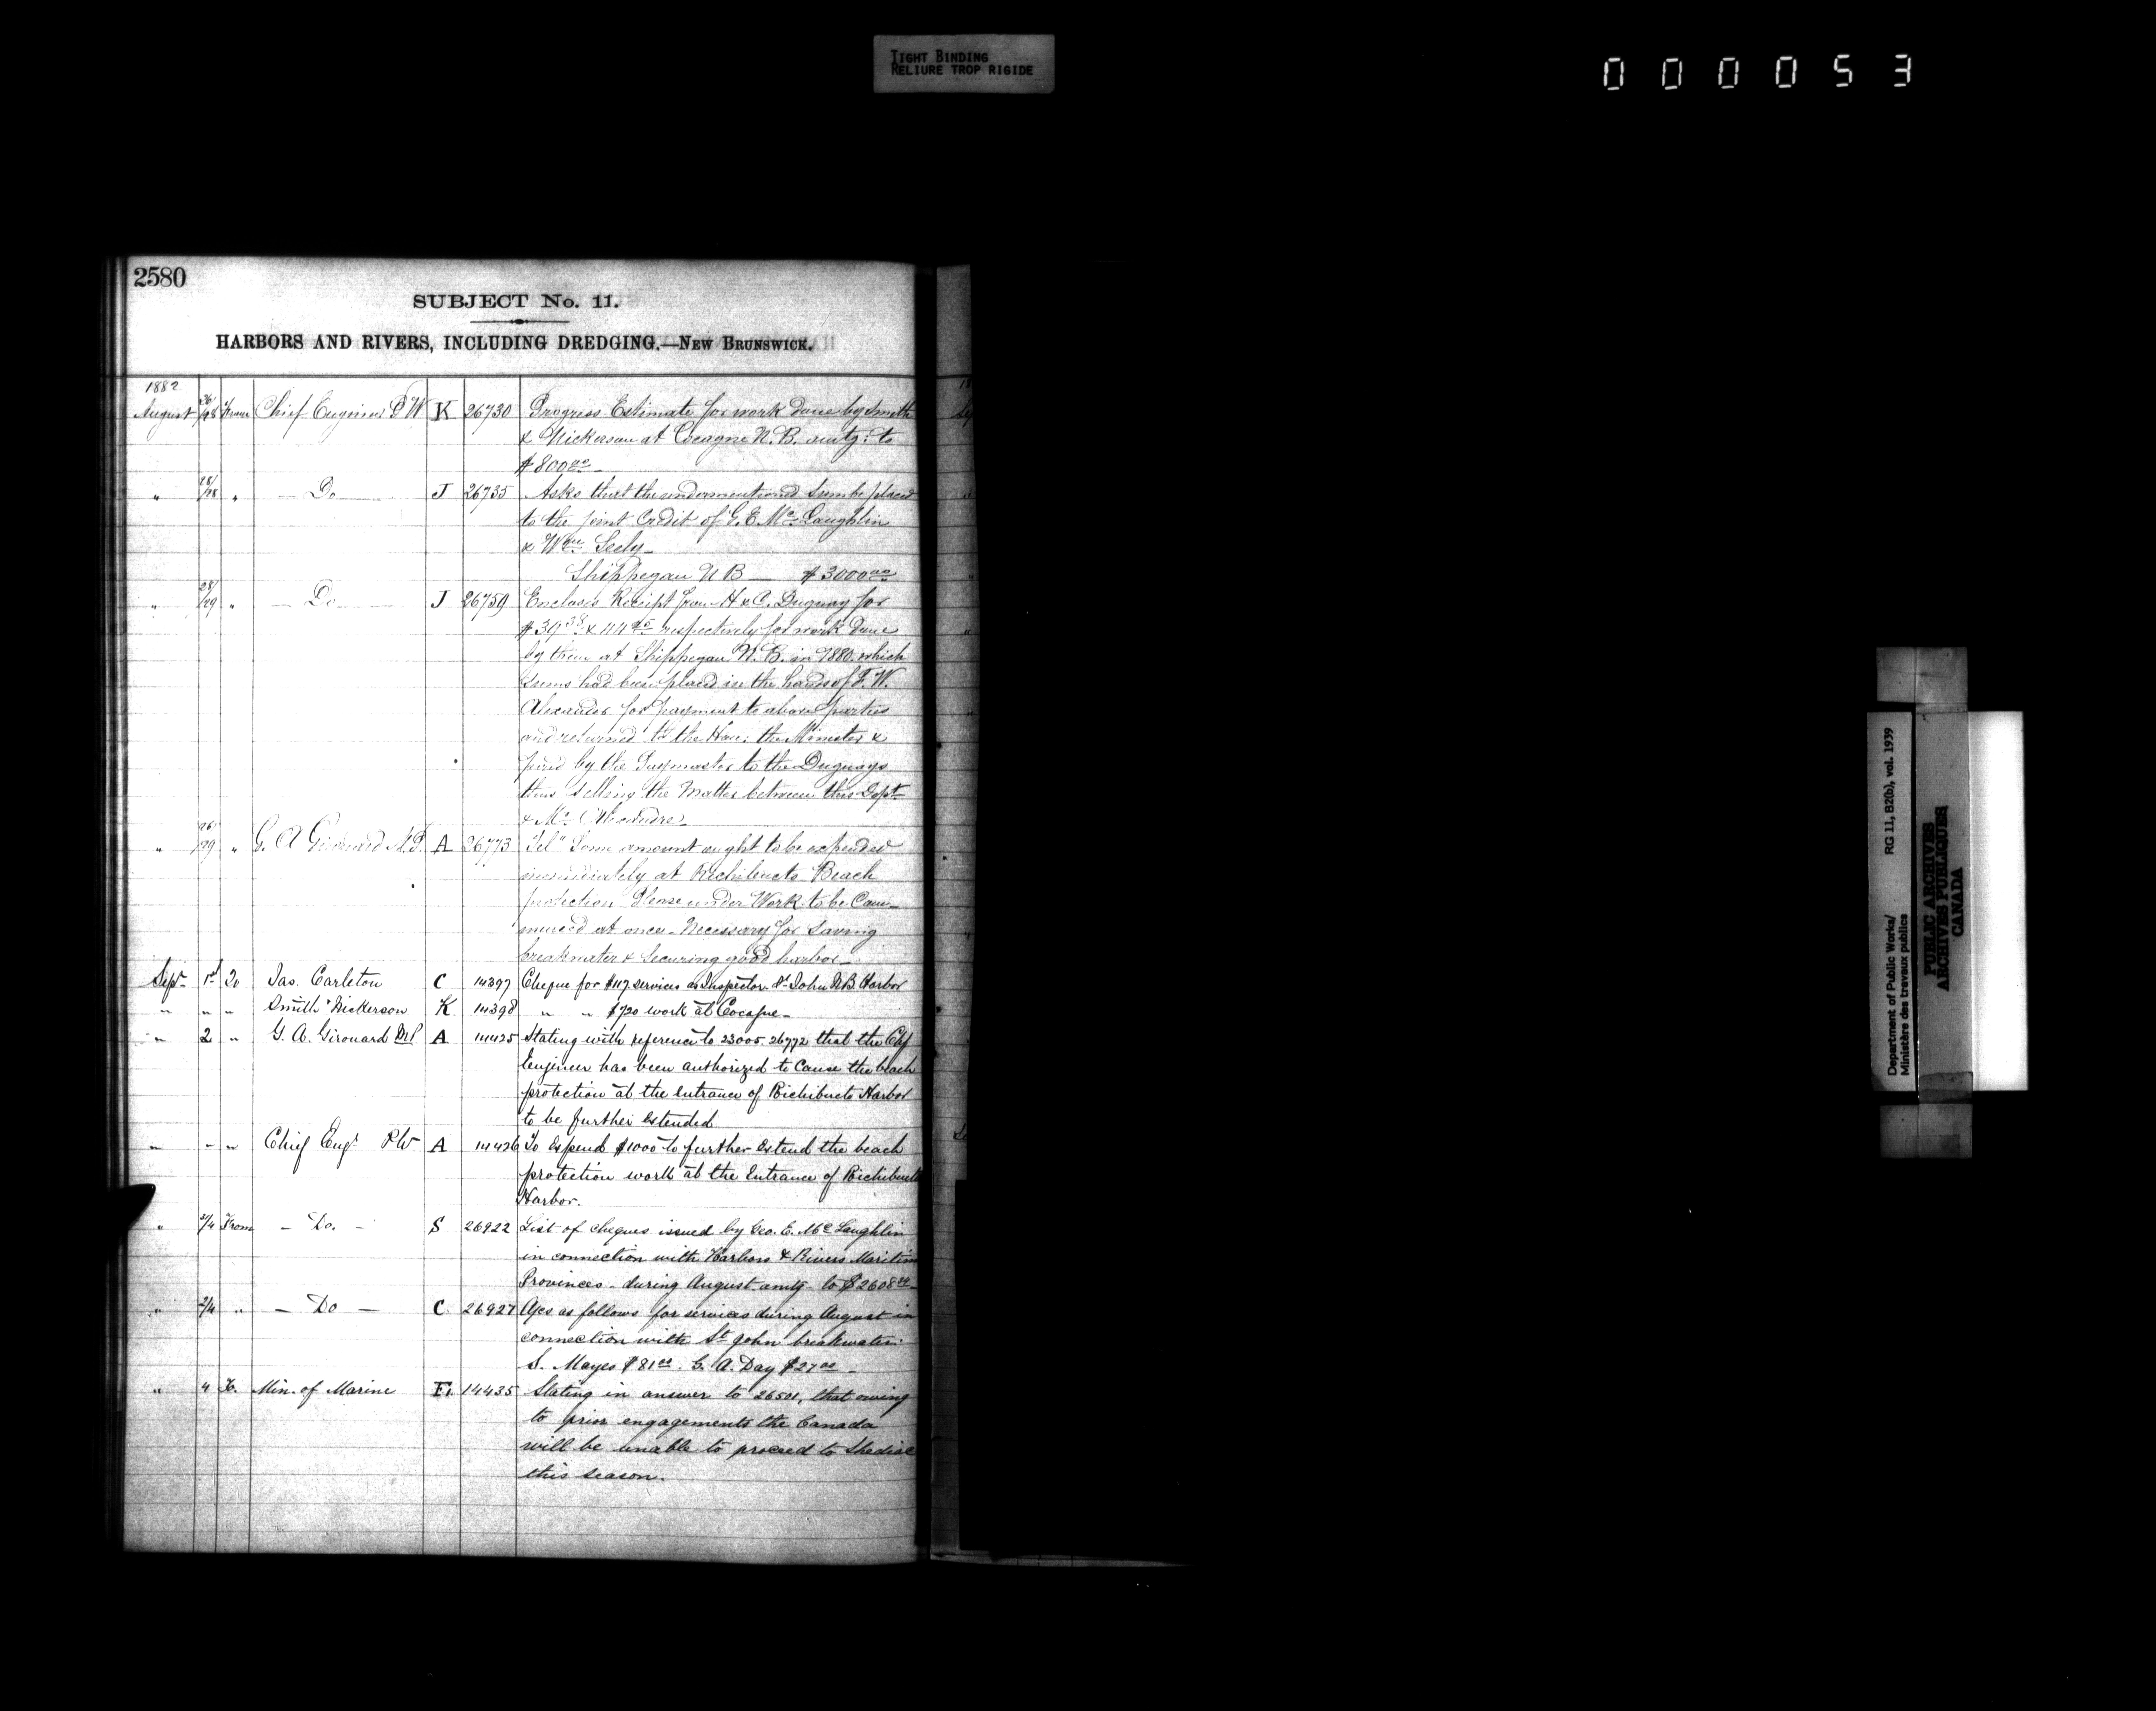 TIGHT BINDING
RELIURE TROP RIGIDE
000053
2580
SUBJECT No. 11.
HARBORS AND RIVERS, INCLUDING DREDGING.—NEW BRUNSWICK.
1882
August 26/28 From Chief Engineer P W K 26730 Progress Estimate for work done by Smith
& Nickerson at Cocagne N.B. amtg: to
$800.00
" 28/28 " — Do — J 26735 Asks that the undermentioned sum be placed
to the joint Credit of G. E. McLaughlin
& Wm Seely
Shippegan N B — $3000.00
" 28/29 " — Do — J 26759 Encloses Receipt from H & C. Duguay for
$39.38 & 44 respectively for work done
by them at Shippegan N.B. in 1880 which
sums had been placed in the hands of F. W.
Alexander for payment to above parties
and returned to the Hon: the Minister &
paid by the Paymaster to the Duguays
thus settling the matter between this Dept
& Mr
" 26/29 " G. A Girouard M.P. A 26773 "Tel" Some amount ought to be expended
immediately at Richibucto Beach
protection Please order Work to be Com-
menced at once. Necessary for saving
breakwater & securing good harbor
Sept 1st To Jas. Carleton C 14397 Cheque for $117 services as Inspector St John NB Harbor
" " " Smith & Nickerson K 14398 " " $720 work at Cocagne
" 2 " G. A. Girouard MP A 14425 Stating with reference to 23005. 26772 that the Chf
Engineer has been authorized to cause the beach
protection at the entrance of Richibucto Harbor
to be further extended
" " " Chief Engr PW A 14426 To expend $1000 to further extend the beach
protection work at the Entrance of Richibucto
Harbor.
" 2/4 From — Do. — S 26922 List of cheques issued by Geo. E. McLaughlin
in connection with Harbors & Rivers Maritime
Provinces - during August amtg to $2608
" 2/4 " — Do — C. 26927 A/cs as follows for services during August in
connection with St John breakwater:
S. Mayes $81.00. G. A. Day $27.00
" 4 To. Min. of Marine F. 14435 Stating in answer to 26501, that owing
to prior engagements the Canada
will be unable to proceed to Shediac
this season.
Department of Public Works/
Ministère des travaux publics
RG 11, B2(b), vol. 1939
PUBLIC ARCHIVES
ARCHIVES PUBLIQUES
CANADA